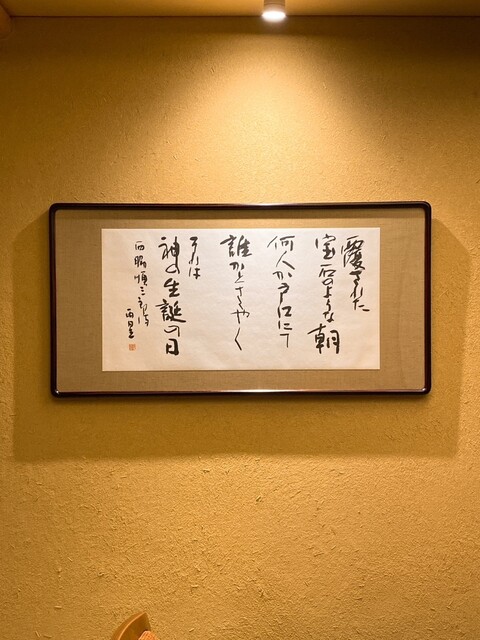 覆された
宝石のような朝
何人か戸口にて
誰かとさゝやく
それは
神の生誕の日
西脇順三郎詩